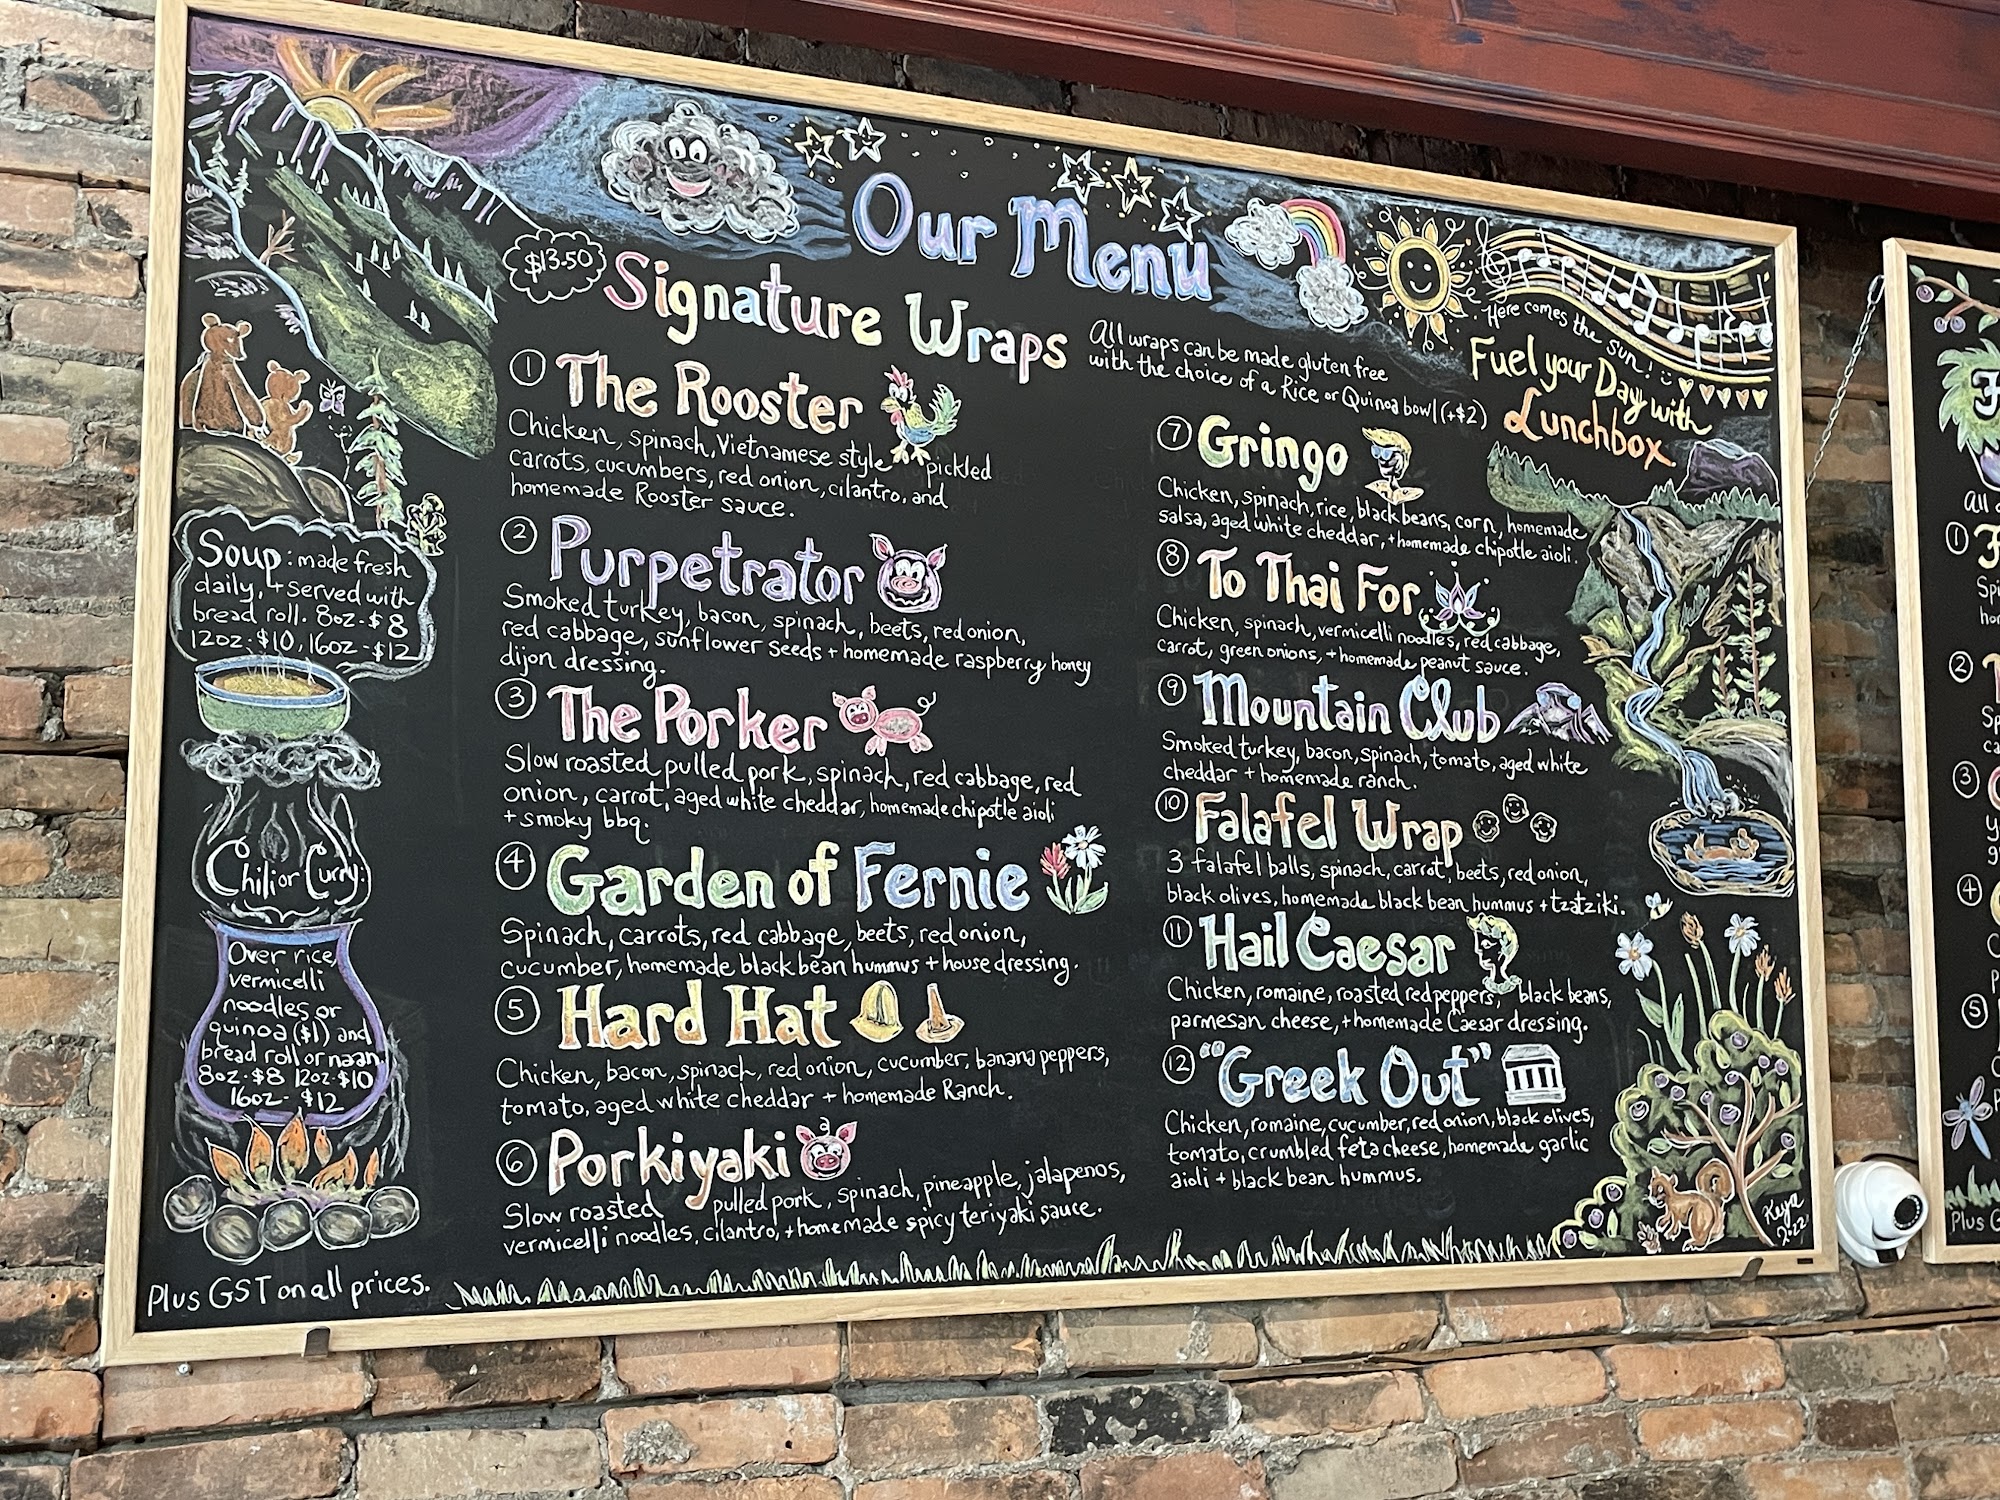 Our Menu
$13.50
Signature Wraps
All wraps can be made gluten free
with the choice of a Rice or Quinoa bowl (+$2)
Here comes the sun!
Fuel your Day with
Lunchbox
1 The Rooster
Chicken, spinach, Vietnamese style pickled
carrots, cucumbers, red onion, cilantro, and
homemade Rooster sauce.
2 Purpetrator
Smoked turkey, bacon, spinach, beets, red onion,
red cabbage, sunflower seeds + homemade raspberry honey
dijon dressing.
3 The Porker
Slow roasted pulled pork, spinach, red cabbage, red
onion, carrot, aged white cheddar, homemade chipotle aioli
+ smoky bbq.
4 Garden of Fernie
Spinach, carrots, red cabbage, beets, red onion,
cucumber, homemade black bean hummus + house dressing.
5 Hard Hat
Chicken, bacon, spinach, red onion, cucumber, banana peppers,
tomato, aged white cheddar + homemade Ranch.
6 Porkiyaki
Slow roasted pulled pork, spinach, pineapple, jalapenos,
vermicelli noodles, cilantro, + homemade spicy teriyaki sauce.
7 Gringo
Chicken, spinach, rice, black beans, corn, homemade
salsa, aged white cheddar, + homemade chipotle aioli.
8 To Thai For
Chicken, spinach, vermicelli noodles, red cabbage,
carrot, green onions, + homemade peanut sauce.
9 Mountain Club
Smoked turkey, bacon, spinach, tomato, aged white
cheddar + homemade ranch.
10 Falafel Wrap
3 falafel balls, spinach, carrot, beets, red onion,
black olives, homemade black bean hummus + tzatziki.
11 Hail Caesar
Chicken, romaine, roasted red peppers, black beans,
parmesan cheese, + homemade Caesar dressing.
12 "Greek Out"
Chicken, romaine, cucumber, red onion, black olives,
tomato, crumbled feta cheese, homemade garlic
aioli + black bean hummus.
Soup: made fresh
daily, + served with
bread roll. 8oz-$8
12oz-$10, 16oz-$12
Chili or Curry:
Over rice,
vermicelli
noodles or
quinoa ($1) and
bread roll or naan
8oz-$8 12oz-$10
16oz-$12
Plus GST on all prices.
Keya
2022
All
1
2
3
4
5
Plus G